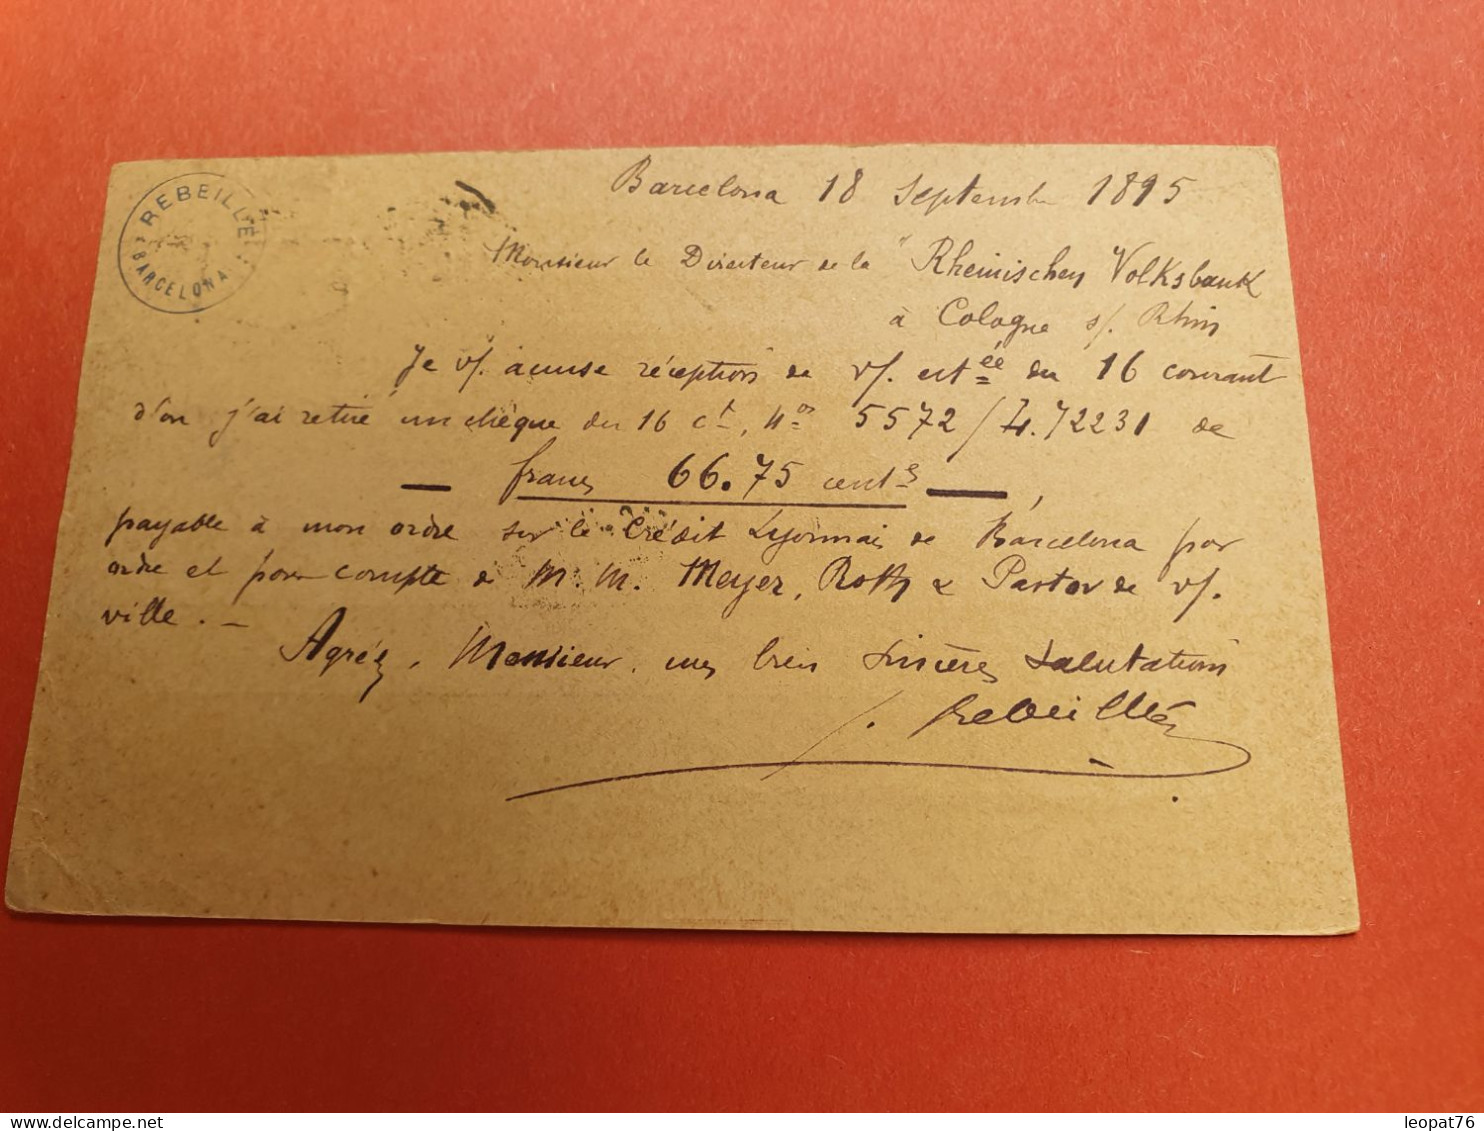 REBEILLÉ
BARCELONA
Barcelona 18 Septembre 1895
Monsieur le Directeur de la "Rheinischen Volksbank
à Cologne s/. Rhin
Je v/. accuse réception de v/. est ée du 16 courant
d'on j'ai retiré un chèque du 16 ct, nos 5572/4.72231 de
— francs 66.75 cent s —,
payable à mon ordre sur le Crédit Lyonnais de Barcelona par
ordre et pour compte de M.M. Meyer, Roth & Pastor de v/.
ville. —
Agréez, Monsieur, mes bien sincères salutations
J. Rebeillé
leopat76